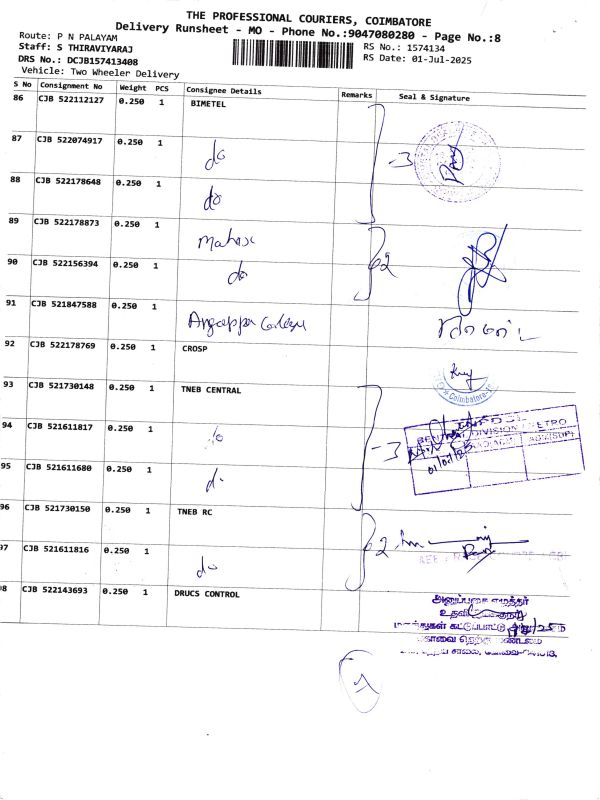 THE PROFESSIONAL COURIERS, COIMBATORE
Delivery Runsheet - MO - Phone No.:9047080280 - Page No.:8
Route: P N PALAYAM
RS No.: 1574134
Staff: S THIRAVIYARAJ
RS Date: 01-Jul-2025
DRS No.: DCJB157413408
Vehicle: Two Wheeler Delivery
S No Consignment No Weight PCS Consignee Details Remarks Seal & Signature
86 CJB 522112127 0.250 1 BIMETEL
87 CJB 522074917 0.250 1 do
-3
88 CJB 522178648 0.250 1 do
89 CJB 522178873 0.250 1
90 CJB 522156394 0.250 1 do
2
91 CJB 521847588 0.250 1
92 CJB 522178769 0.250 1 CROSP
Coimbatore
93 CJB 521730148 0.250 1 TNEB CENTRAL
94 CJB 521611817 0.250 1 do
-3
DIVISION / METRO
95 CJB 521611680 0.250 1 do
96 CJB 521730150 0.250 1 TNEB RC
2
97 CJB 521611816 0.250 1 do
98 CJB 522143693 0.250 1 DRUCS CONTROL